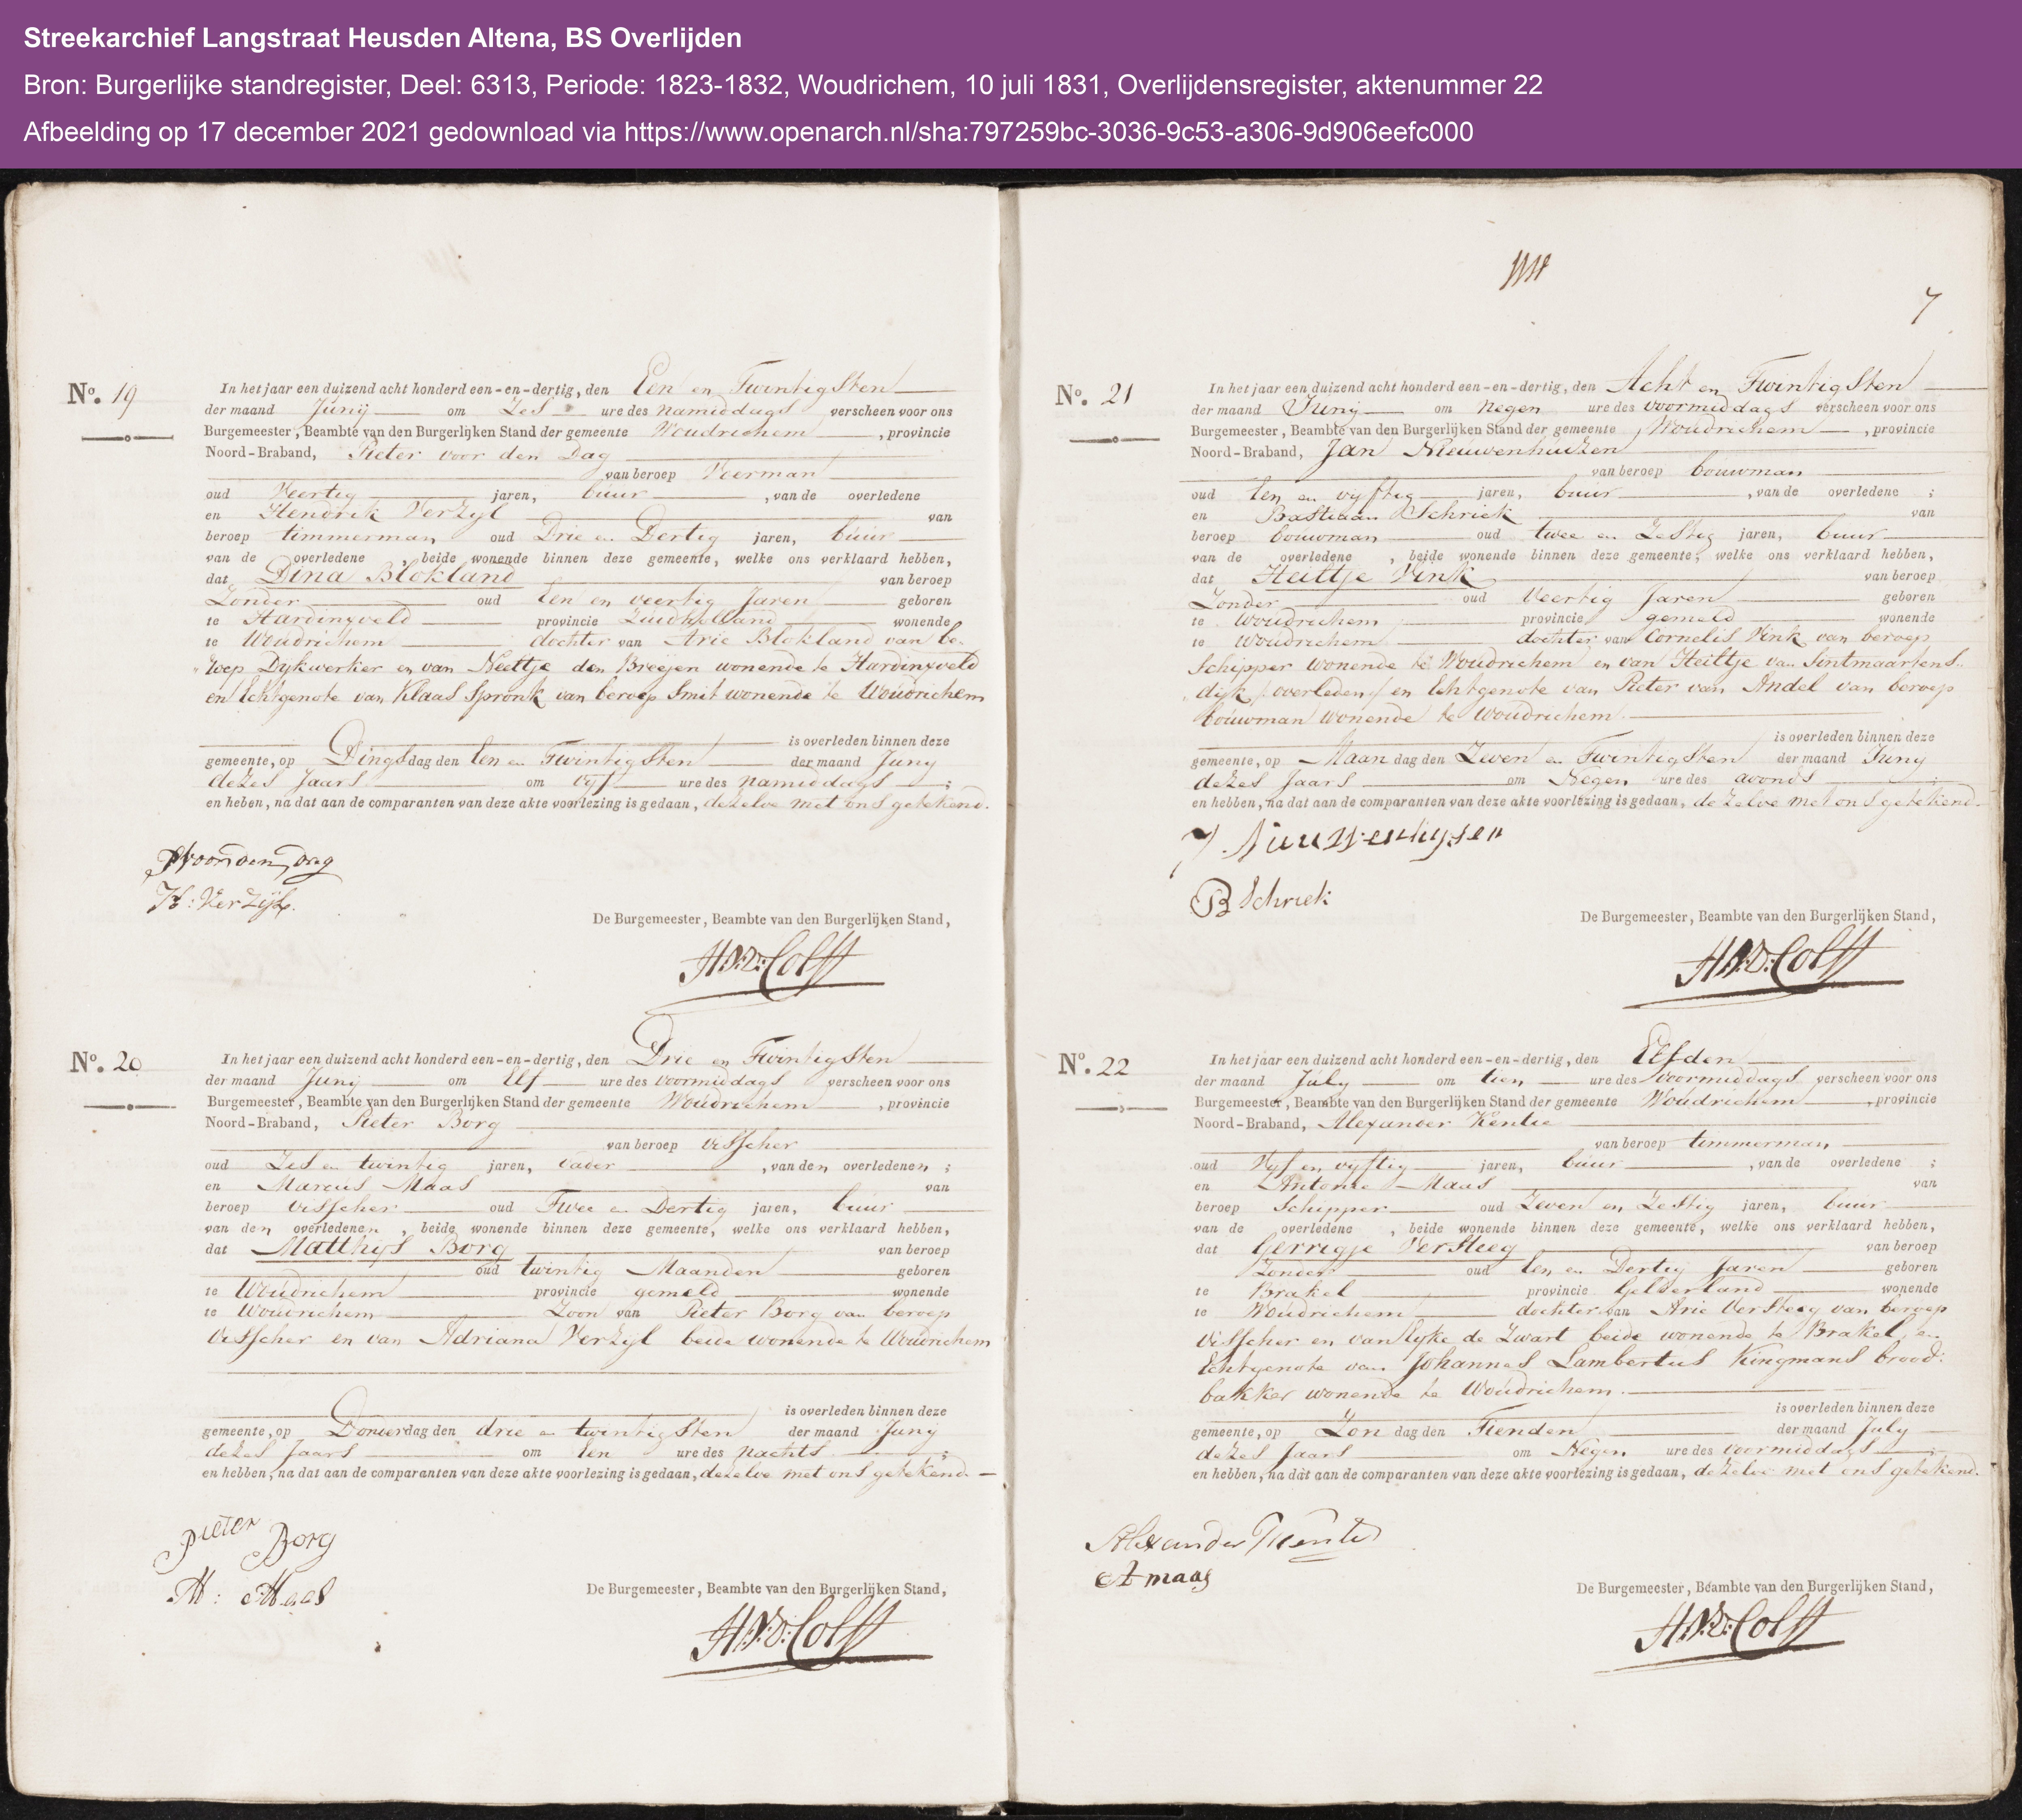 Streekarchief Langstraat Heusden Altena, BS Overlijden
Bron: Burgerlijke standregister, Deel: 6313, Periode: 1823-1832, Woudrichem, 10 juli 1831, Overlijdensregister, aktenummer 22
Afbeelding op 17 december 2021 gedownload via https://www.openarch.nl/sha:797259bc-3036-9c53-a306-9d906eefc000
No. 19
In het jaar een duizend acht honderd een-en-dertig, den Een en Twintigsten
der maand Junij om Zes ure des namiddags verscheen voor ons
Burgemeester, Beambte van den Burgerlijken Stand der gemeente Woudrichem, provincie
Noord-Braband, Pieter voor den Dag
van beroep Veerman
oud Veertig jaren, buur, van de overledene
en Hendrik Verzijl van
beroep timmerman oud Drie en Dertig jaren, buur
van de overledene, beide wonende binnen deze gemeente, welke ons verklaard hebben,
dat Dina Blokland van beroep
Zonder oud Een en veertig Jaren geboren
te Hardinxveld provincie Zuidholland wonende
te Woudrichem dochter van Arie Blokland van be-
roep Dykwerker en van Neeltje den Breejen wonende te Hardinxveld
en Echtgenote van Klaas Spronk van beroep Smit wonende te Woudrichem
is overleden binnen deze
gemeente, op Dingsdag den Een en Twintigsten der maand Juny
dezes Jaars om vyf ure des namiddags ;
en heben, na dat aan de comparanten van deze akte voorlezing is gedaan, dezelve met ons getekend.
PVoordendag
H: Verzijl.
De Burgemeester, Beambte van den Burgerlijken Stand,
H.V.D. Colff
No. 20
In het jaar een duizend acht honderd een-en-dertig, den Drie en Twintigsten
der maand Junij om Elf ure des voormiddags verscheen voor ons
Burgemeester, Beambte van den Burgerlijken Stand der gemeente Woudrichem, provincie
Noord-Braband, Pieter Borg
van beroep visscher
oud Zes en twintig jaren, vader, van den overledenen ;
en Marcus Maas van
beroep visscher oud Twee en Dertig jaren, buur
van den overledenen, beide wonende binnen deze gemeente, welke ons verklaard hebben,
dat Matthijs Borg van beroep
oud twintig Maanden geboren
te Woudrichem provincie gemeld wonende
te Woudrichem Zoon van Pieter Borg van beroep
visscher en van Adriana Verzyl beide wonende te Woudrichem
is overleden binnen deze
gemeente, op Donderdag den drie en twintigsten der maand Juny
dezes Jaars om Een ure des nachts ;
en hebben, na dat aan de comparanten van deze akte voorlezing is gedaan, dezelve met ons getekend.
Pieter Borg
M: Maas
De Burgemeester, Beambte van den Burgerlijken Stand,
H.V.D. Colff
7
No. 21
In het jaar een duizend acht honderd een-en-dertig, den Acht en Twintigsten
der maand Junij om negen ure des voormiddags verscheen voor ons
Burgemeester, Beambte van den Burgerlijken Stand der gemeente Woudrichem, provincie
Noord-Braband, Jan Nieuwenhuizen
van beroep bouwman
oud Een en vyftig jaren, buur, van de overledene ;
en Bastiaan Schriek van
beroep bouwman oud twee en Zestig jaren, buur
van de overledene, beide wonende binnen deze gemeente, welke ons verklaard hebben,
dat Heiltje Vink van beroep
Zonder oud Veertig Jaren geboren
te Woudrichem provincie gemeld wonende
te Woudrichem dochter van Cornelis Vink van beroep
Schipper wonende te Woudrichem en van Heiltje van Sintmaartens-
dijk /:overleden/ en Echtgenote van Pieter van Andel van beroep
bouwman wonende te Woudrichem.
is overleden binnen deze
gemeente, op Maandag den Zeven en Twintigsten der maand Juny
dezes Jaars om Negen ure des avonds ;
en hebben, na dat aan de comparanten van deze akte voorlezing is gedaan, dezelve met ons getekend.
J Nieuwenhijsen
B Schriek
De Burgemeester, Beambte van den Burgerlijken Stand,
H.V.D. Colff
No. 22
In het jaar een duizend acht honderd een-en-dertig, den Elfden
der maand July om tien ure des voormiddags verscheen voor ons
Burgemeester, Beambte van den Burgerlijken Stand der gemeente Woudrichem, provincie
Noord-Braband, Alexander Kentie
van beroep timmerman
oud Vyf en vyftig jaren, buur, van de overledene ;
en Antonie Maas van
beroep Schipper oud Zeven en Zestig jaren, buur
van de overledene, beide wonende binnen deze gemeente, welke ons verklaard hebben,
dat Gerrigje Versteeg van beroep
Zonder oud Een en Dertig Jaren geboren
te Brakel provincie Gelderland wonende
te Woudrichem dochter van Arie Versteeg van beroep
visscher en van Eyke de Zwart beide wonende te Brakel, en
Echtgenote van Johannes Lambertus Kingmans brood:
bakker wonende te Woudrichem.
is overleden binnen deze
gemeente, op Zondag den Tienden der maand July
dezes Jaars om Negen ure des voormiddags ;
en hebben, na dat aan de comparanten van deze akte voorlezing is gedaan, dezelve met ons getekend.
Alexander Kentie
A maas
De Burgemeester, Beambte van den Burgerlijken Stand,
H.V.D. Colff